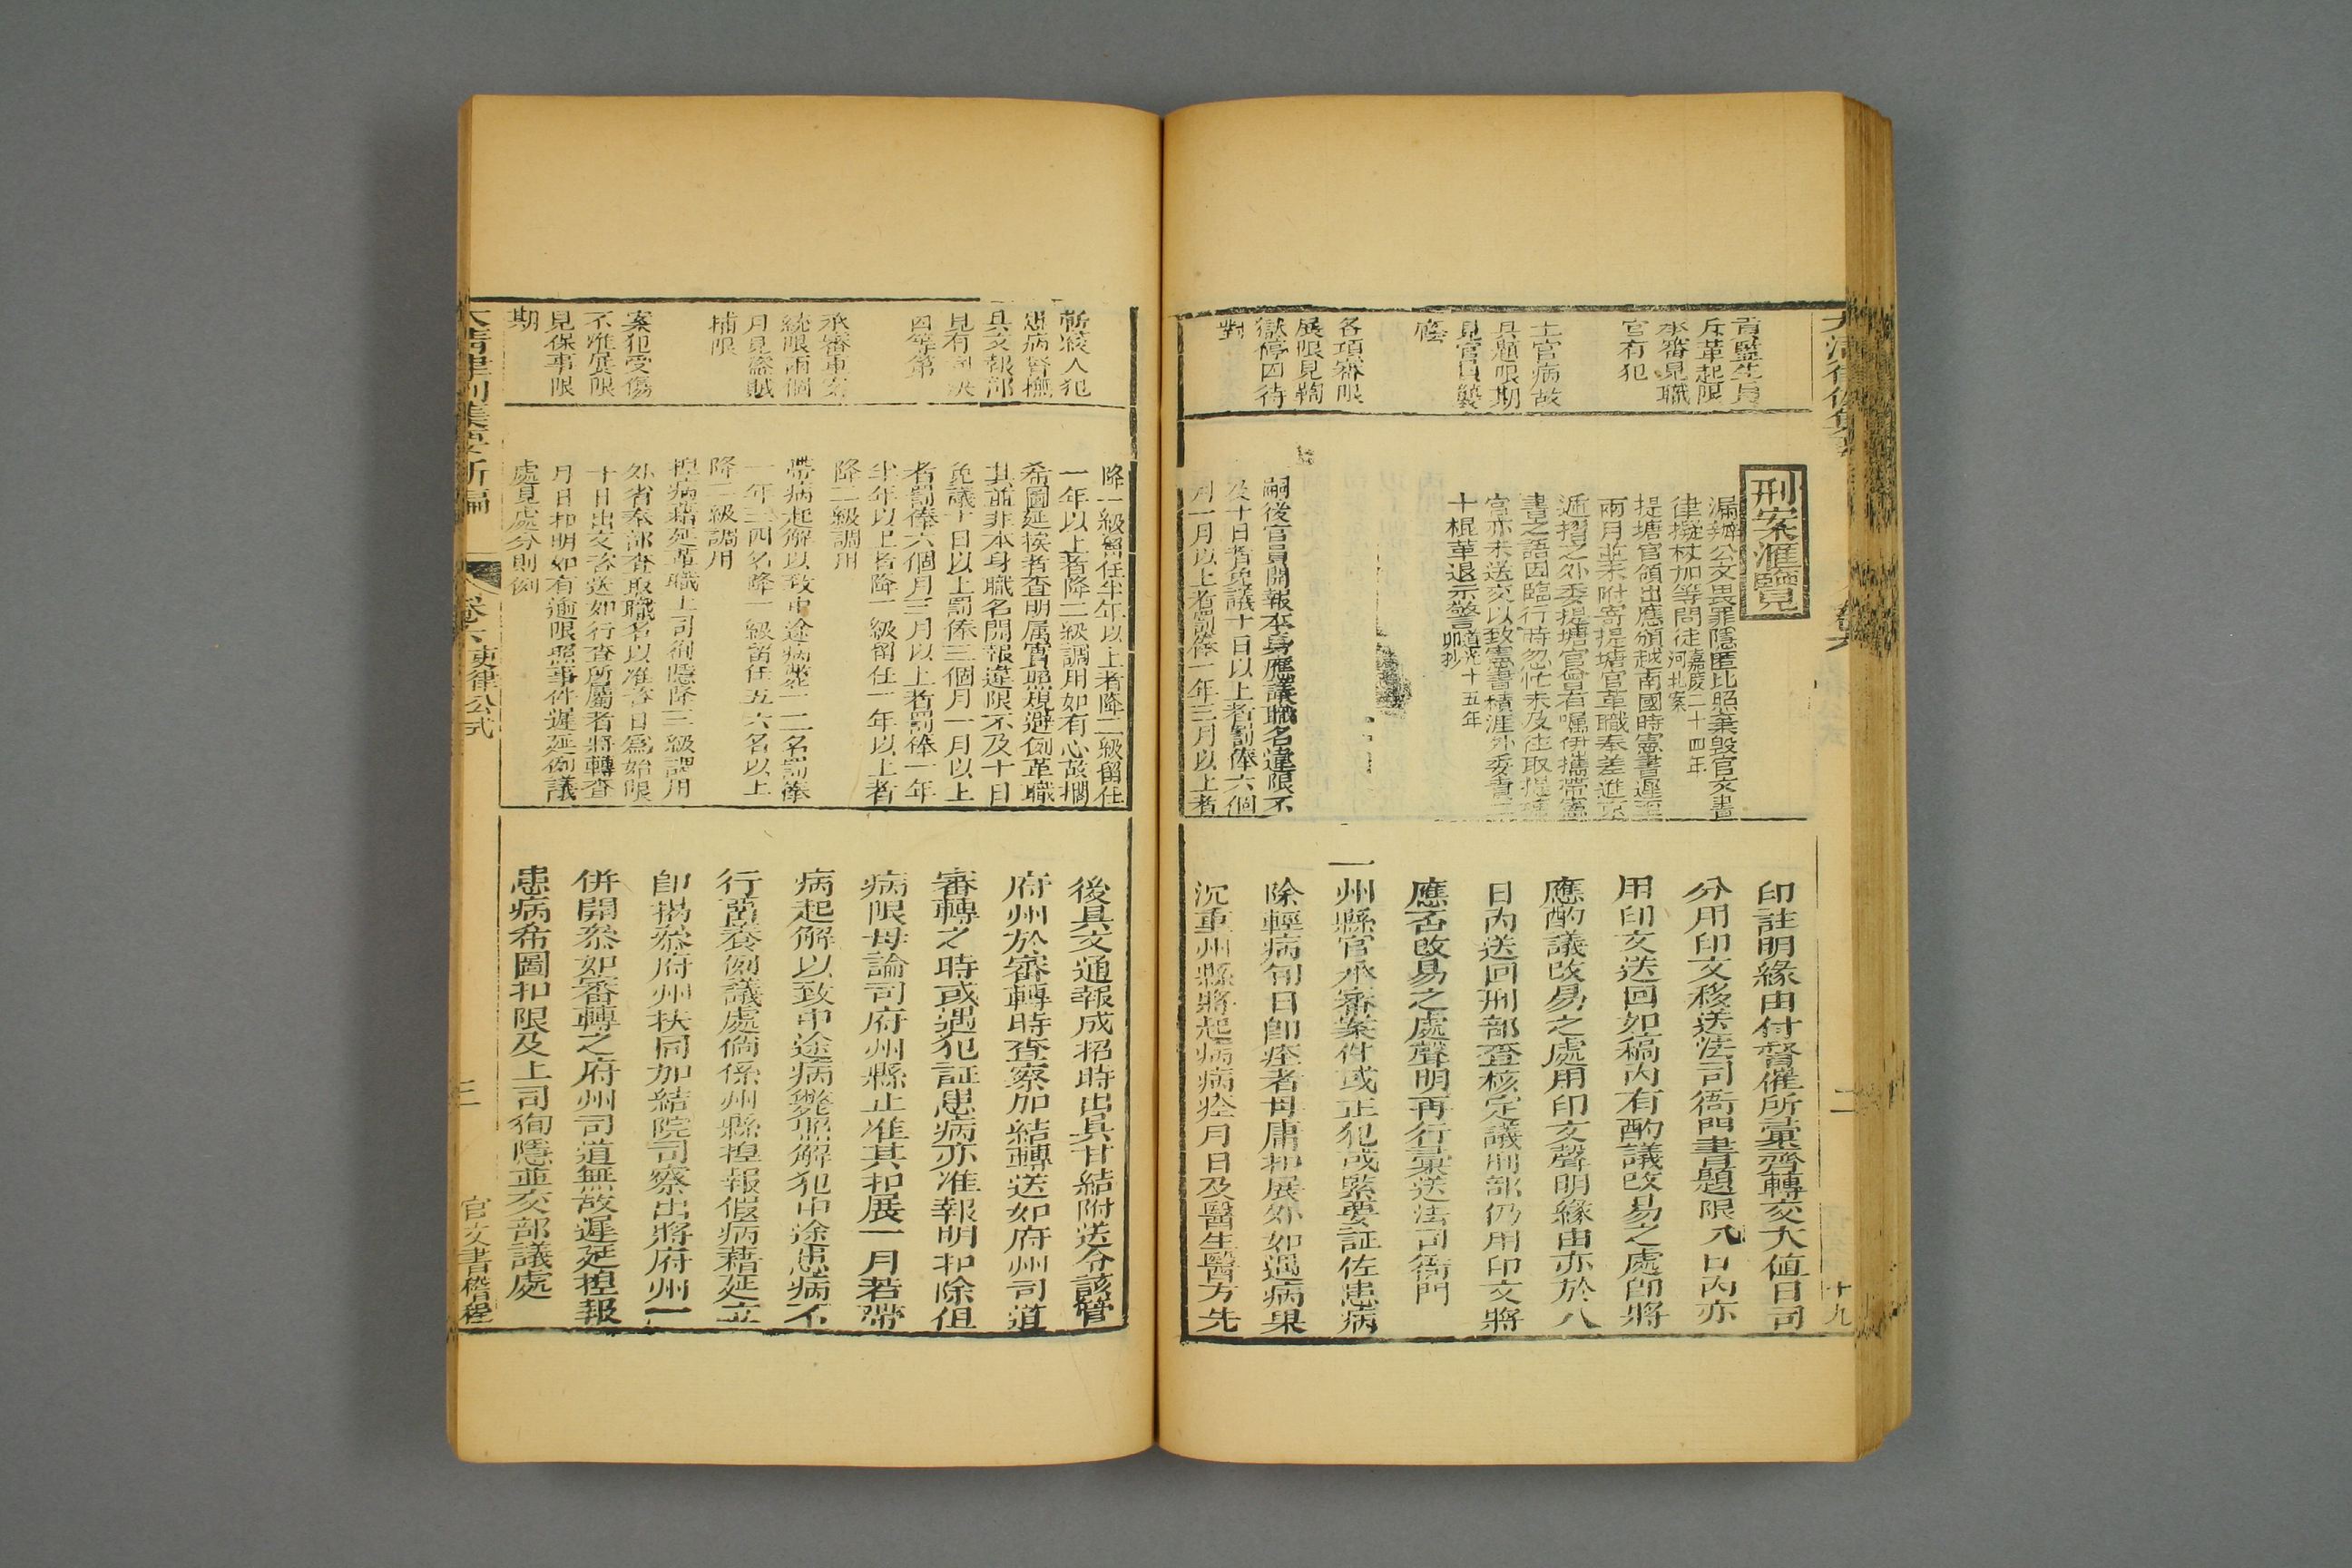 青監生員
斥革起限
承審見職
官有犯
土官病故
具題限期
見官員襲
廕
各項審限
展限見鞫
獄停囚待
對
刑案滙覽
漏辦公文畏罪隱匿比照棄毀官文書
律擬杖加等問徒嘉慶二十四年河扎案
提塘官領出應頒越南國時憲書遲至
兩月並未附寄提塘官革職奉差進京
遞摺之外委提塘官曾有囑伊攜帶憲
書之語因臨行時忽忙未及往取提塘
官亦未送交以致憲書積涯外委責三
十棍革退示警道光十五年卯抄
嗣後官員開報本身應議職名違限不
及十日者免議十日以上者罰俸六個
月一月以上者罰俸一年三月以上者
印註明緣由付督催所彙齊轉交大值日司
分用印文移送法司衙門書題限八日內亦
用印文送回如稿內有酌議改易之處卽將
應酌議改易之處用印文聲明緣由亦於八
日內送回刑部查核定議刑部仍用印文將
應否改易之處聲明再行彙送法司衙門
一州縣官承審案件或正犯或緊要証佐患病
除輕病旬日卽痊者毋庸扣展外如遇病果
沉重州縣將起病病痊月日及醫生醫方先
二
十九
斬絞人犯
患病督撫
具文報部
見有司決
囚等第
承審事案
統限兩個
月見盜賊
捕限
案犯受傷
不准展限
見保辜限
期
降一級留任半年以上者降二級留任
一年以上者降二級調用如有心故擱
希圖延挨者查明属實照規避例革職
其前非本身職名開報違限不及十日
免議十日以上罰俸三個月一月以上
者罰俸六個月三月以上者罰俸一年
半年以上者降一級留任一年以上者
降二級調用
帶病起解以致中途病斃一二名罰俸
一年三四名降一級留任五六名以上
降一級調用
揑病藉延革職上司徇隱降三級調用
外省奉部查取職名以准咨日爲始限
十日出文咨送如行查所屬者將轉查
月日扣明如有逾限照事件遲延例議
處見處分則例
後具文通報成招時出具甘結附送令該管
府州於審轉時查察加結轉送如府州司道
審轉之時或遇犯証患病亦准報明扣除但
病限毋論司府州縣止准其扣展一月若帶
病起解以致中途病斃照解犯中途患病不
行畱養例議處倘係州縣揑報假病藉延立
卽揭叅府州扶同加結院司察出將府州一
併開叅如審轉之府州司道無故遲延揑報
患病希圖扣限及上司徇隱並交部議處
大清律例集要新編
卷六
吏律公式
三
官文書稽程